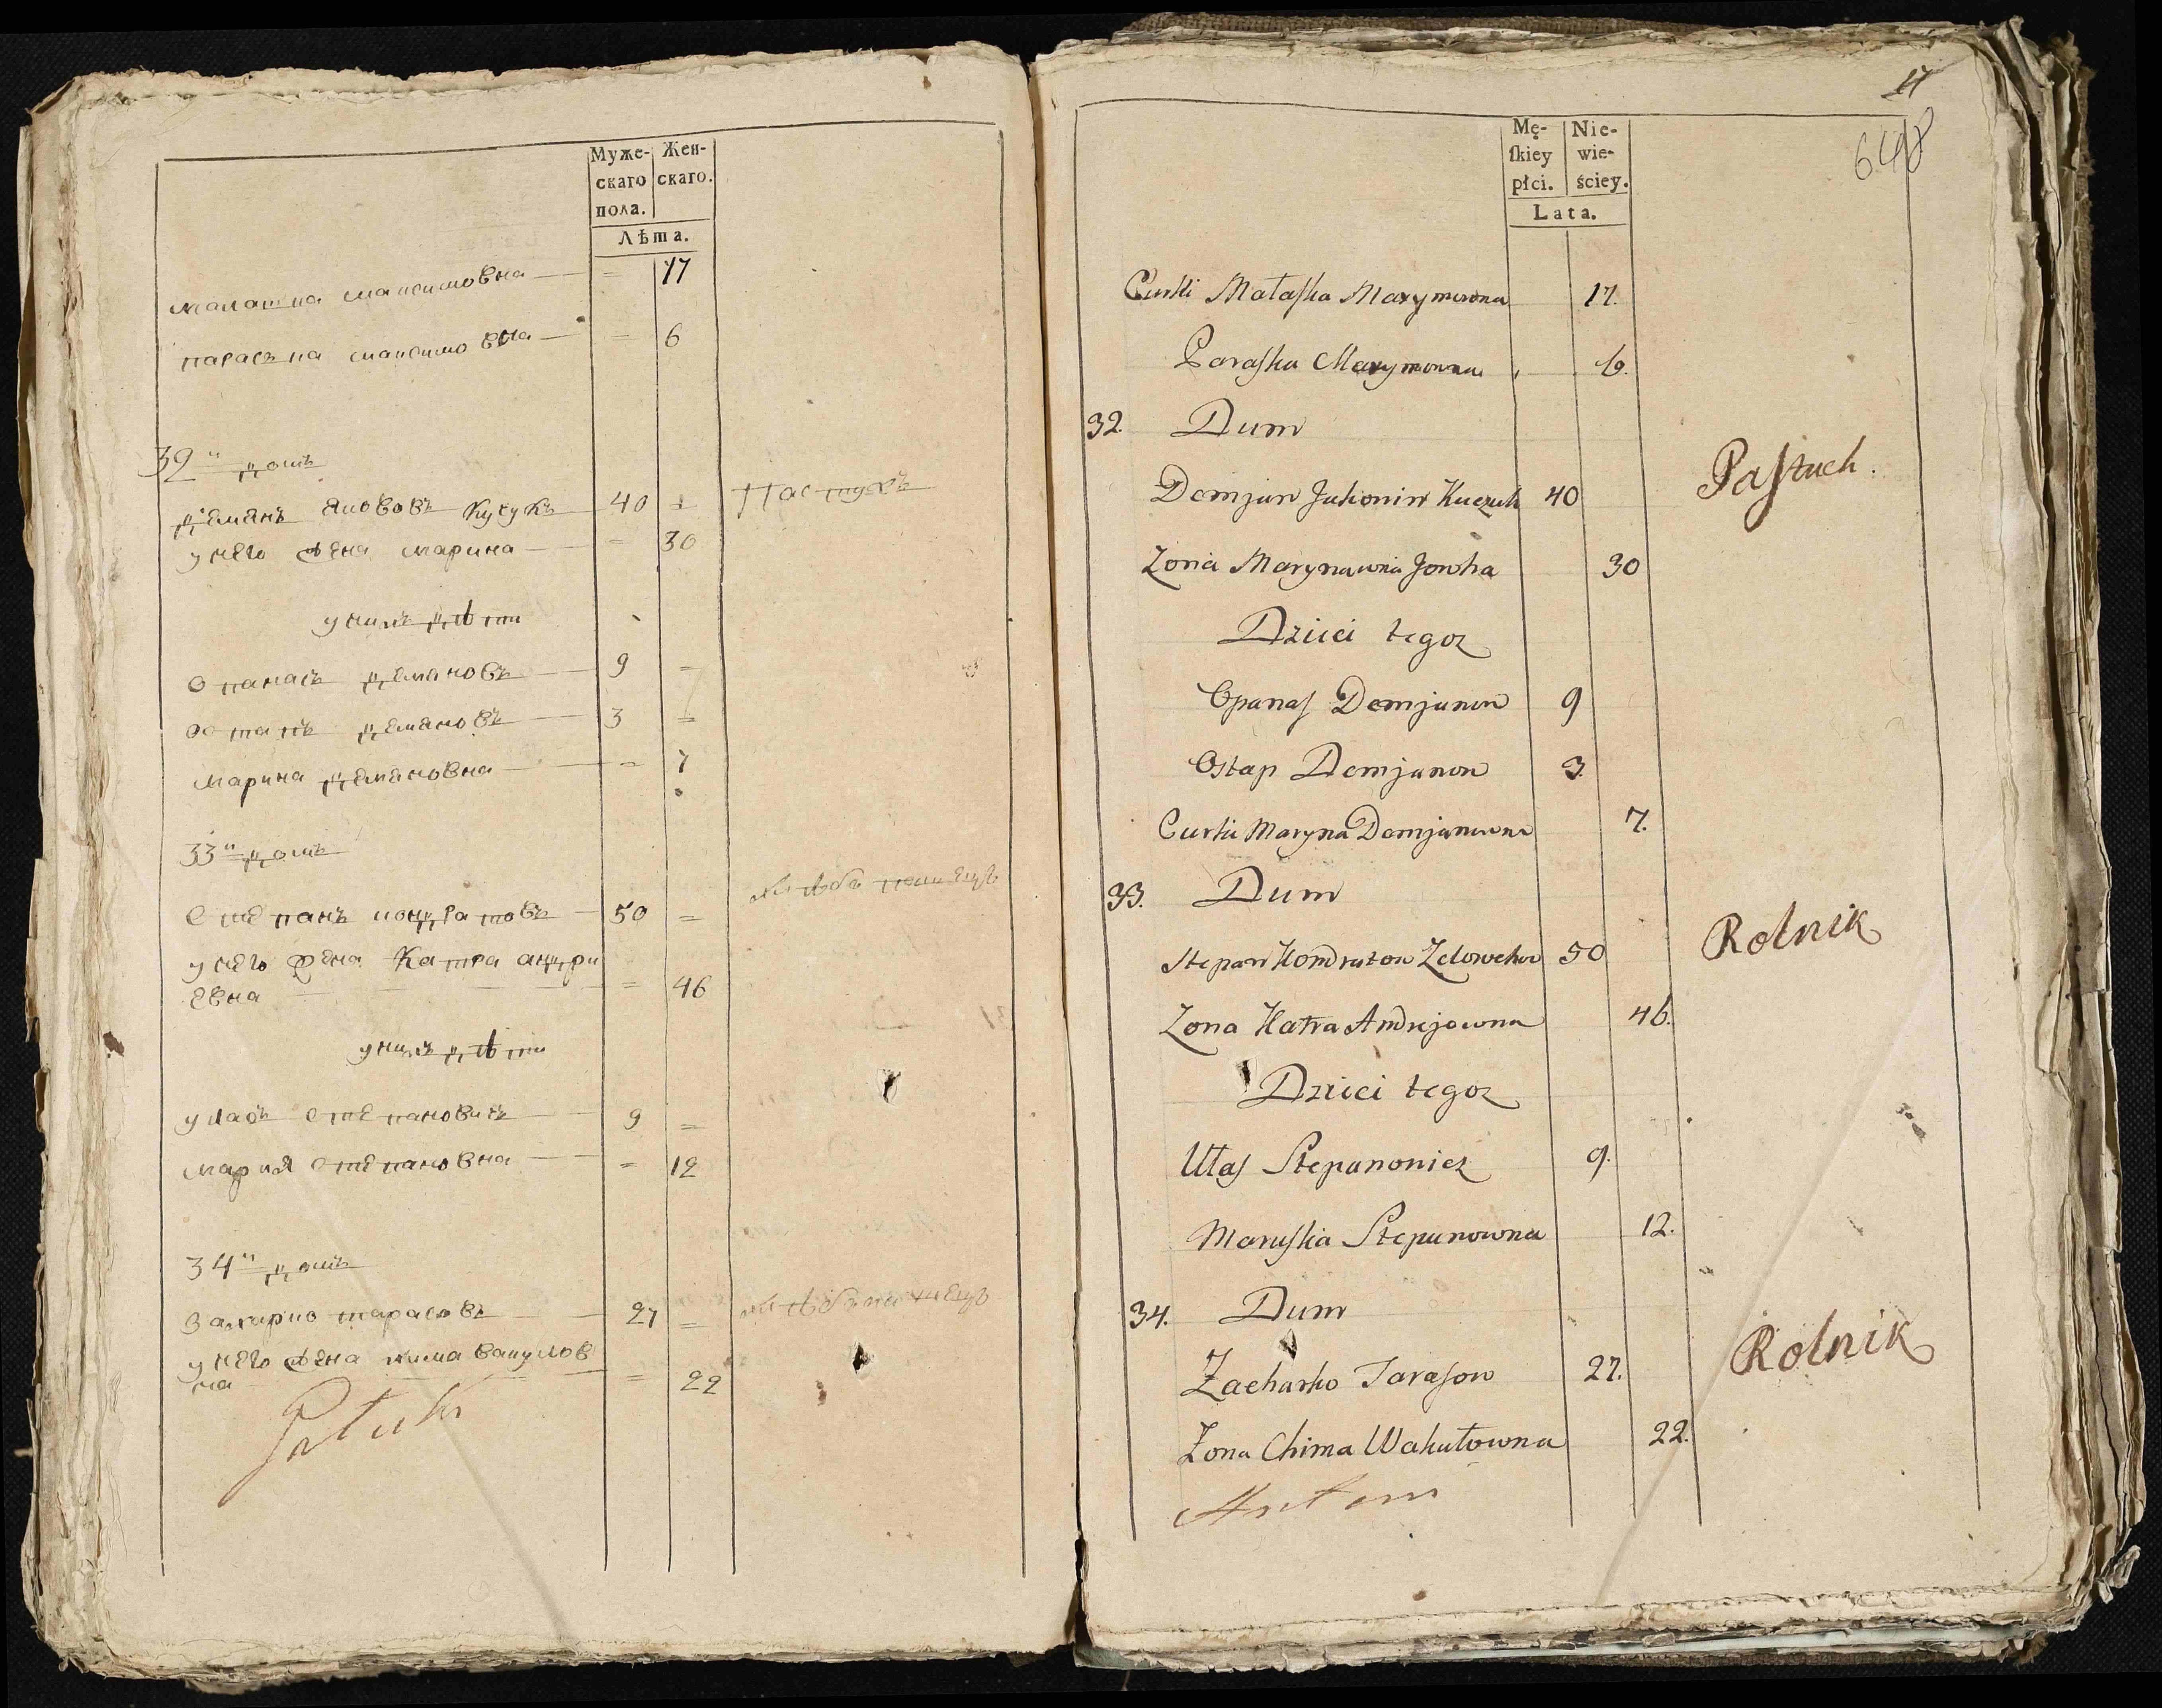 Муже-
скаго
пола.
Жен-
скаго.
Лѣта.
малашка максимовна 17
параска максимовна 6
32й домъ
Демянъ яковавъ кучукъ 40 Пастухъ
у него жена марина 30
у нихъ дѣти
опанасъ демяновъ 9
остапъ демяновъ 3
марина демяновна 7
33й домъ
степанъ кондратовъ 50 хлѣбопашецъ
у него жена Катра андри
евна 46
у нихъ дѣти
уласъ степановичъ 9
мария степановна 12
34й домъ
Захарко тарасовъ 27 хлѣбопашецъ
у него жена хима вакулов
на 22
17
648
Mę-
skiey
płci.
Nie-
wie-
ściey.
Lata.
Curki Małaſka Maxymowna 17.
Paraſka Maxymowna 6.
32. Dum
Demjan Jakowiw Kuczuk 40 Paſtuch.
Zona Maryna 30
Dzieci tegoz
Opanaſ Demjanow 9
Ostap Demjanow 3.
Curka Maryna Demjanowna 7.
33. Dum
Stepan Kondratow 50 Rolnik
Zona Katra Andrejowna 46.
Dzieci tegoz
Ułaſ Stepanowicz 9.
Maruſka Stepanowna 12.
34. Dum
Zacharko Taraſow 27. Rolnik
Zona Chima Wakułowna 22.